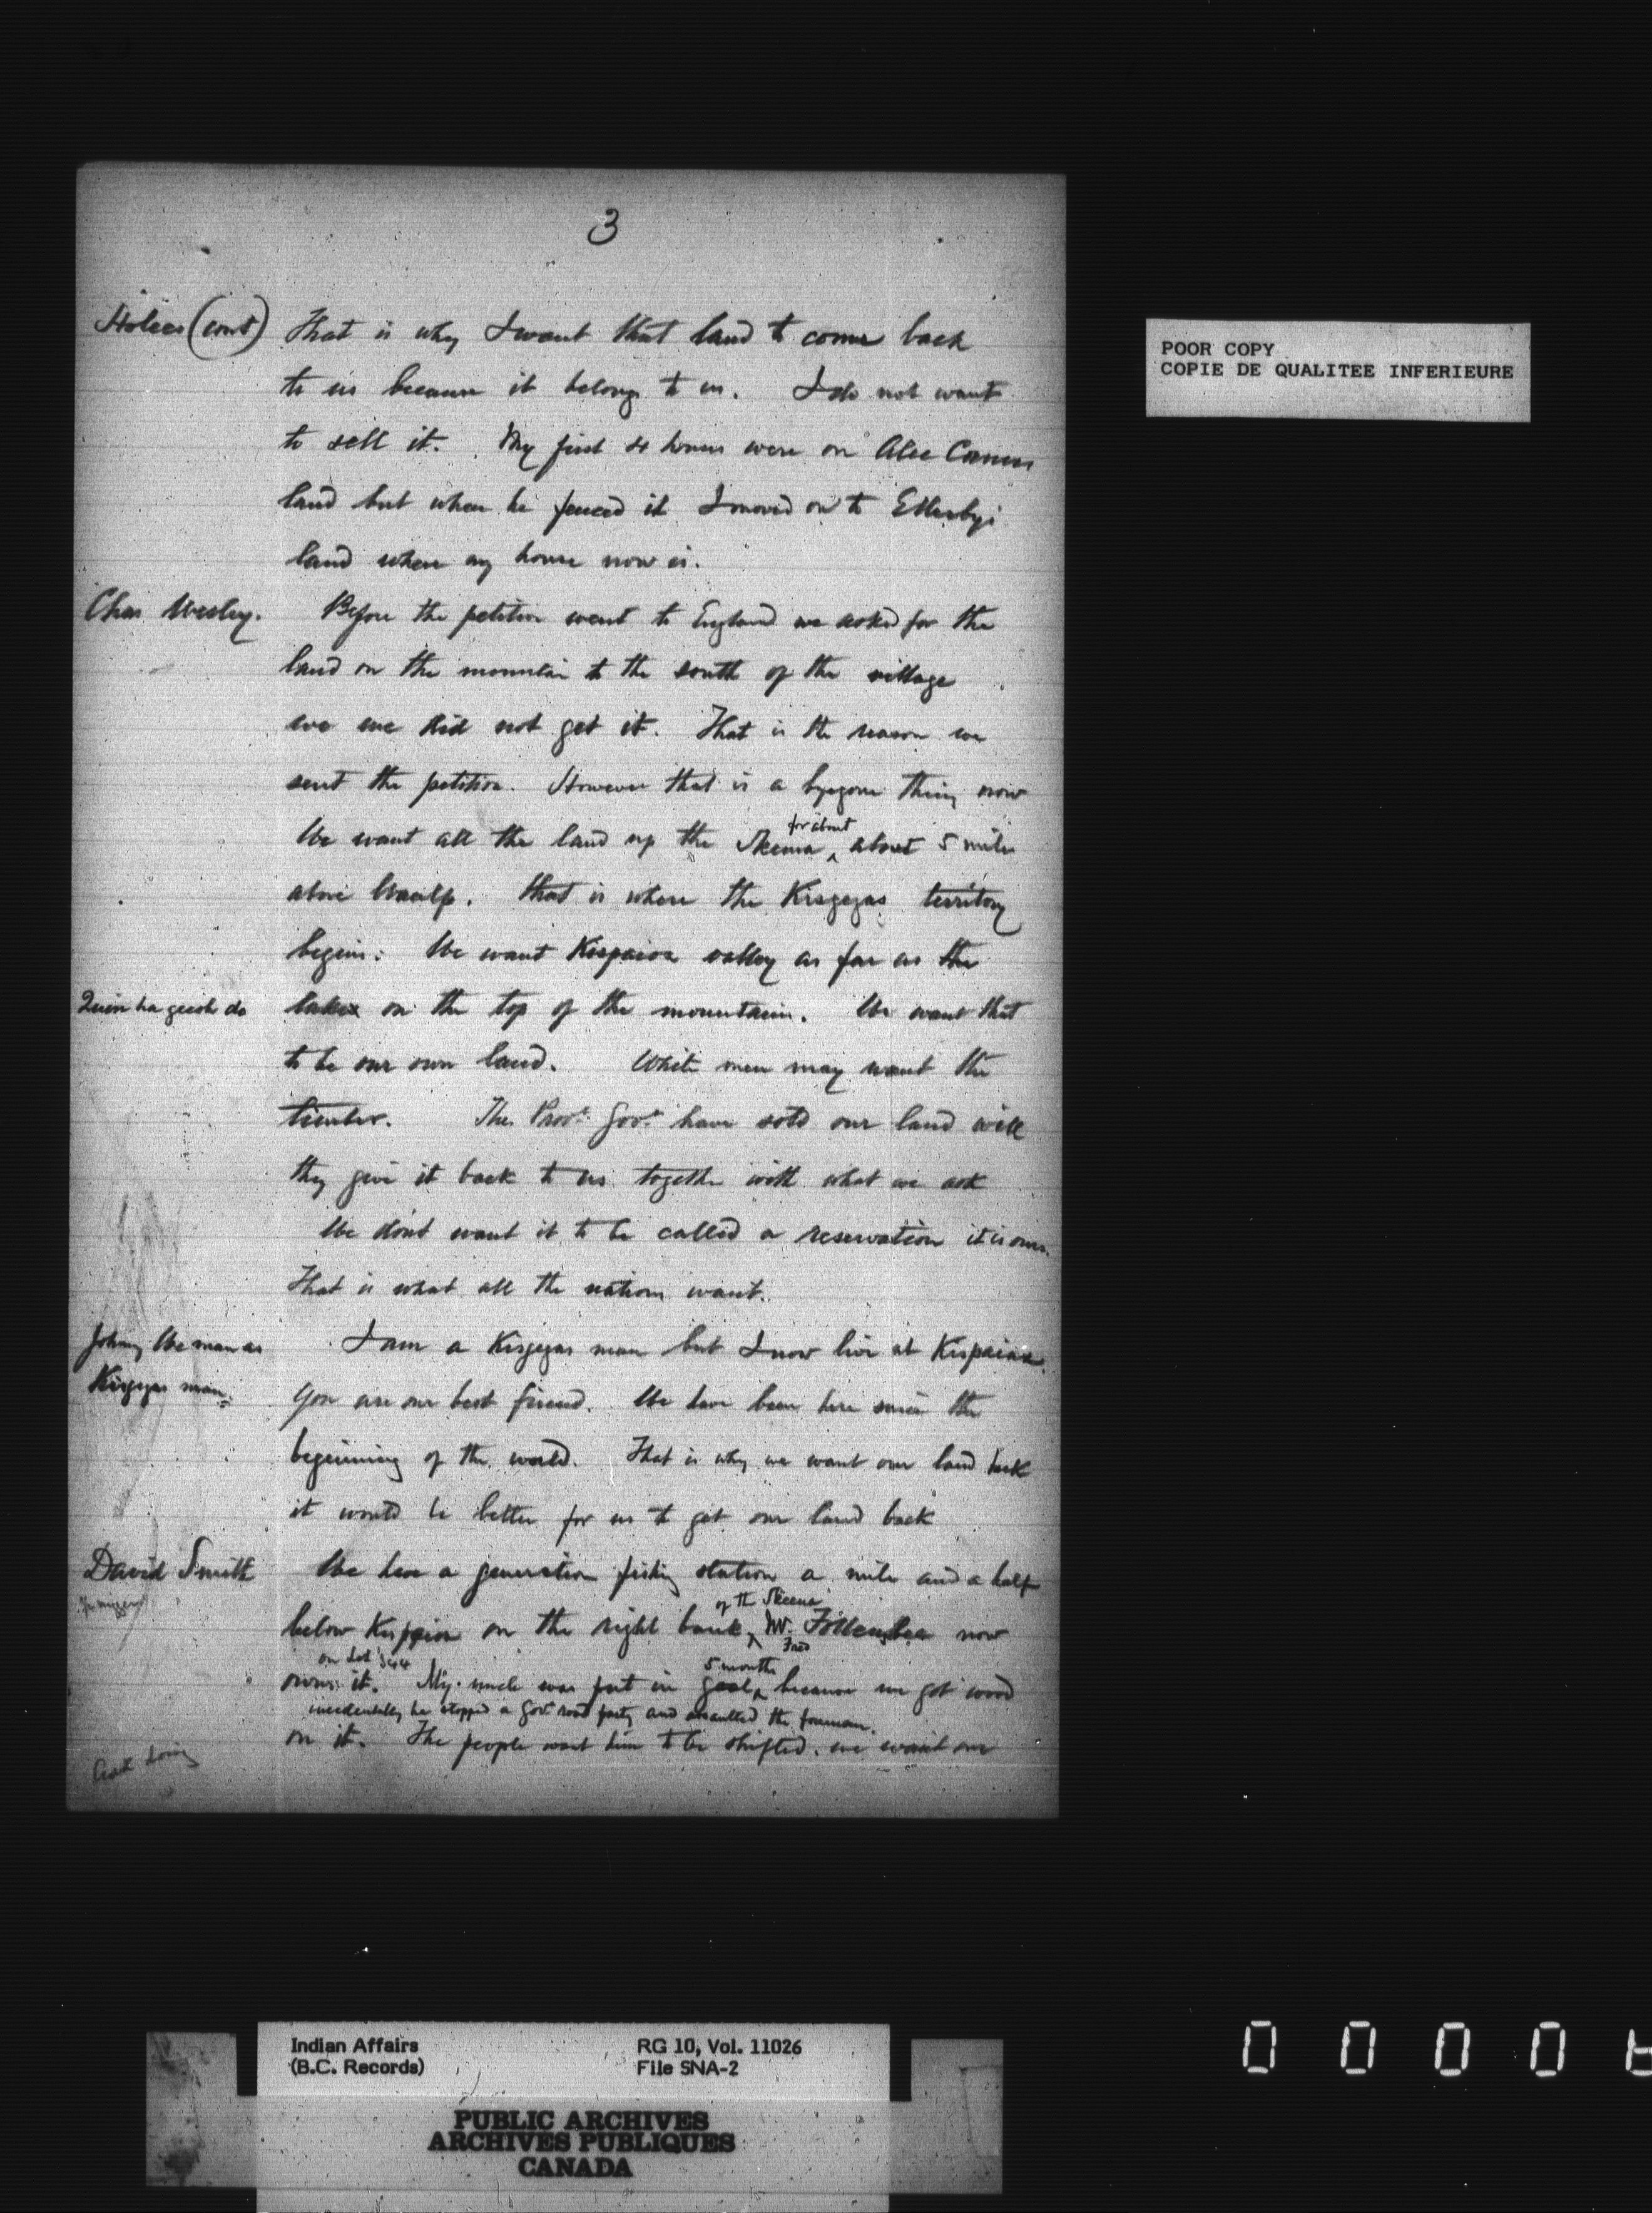 3
(cont) That is why I want that land to come back
to us because it belongs to us. I do not want
to sell it. My first 4 houses were on Alec
land but when he fenced it I moved on to
land where my house now is.
Chas Wesley. Before the petition went to England we asked for the
land on the mountain to the south of the village
we did not get it. That is the reason we
sent the petition. However that is a bygone thing now
for about
We want all the land up the Skeena ^ about 5 miles
above . That is where the Kisgegas territory
begins. We want Kispaiox valley as far as the
lakes on the top of the mountain. We want that
to be our own land. White men may want the
timber. The Provl Govt have sold our land will
they give it back to us together with what we ask
We dont want it to be called a reservation it is ours.
That is what all the nations want.
Johnny I am a Kisgegas man but I now live at Kispaiax.
Kisgegas man. You are our best friend. We have been here since the
beginning of the world. That is why we want our land back
it would be better for us to get our land back
David Smith We have a generation fishing station a mile and a half
of the Skeena
below Kispaiox on the right bank ^ Mr. now
Fred
on Lot 5 months
owns it. My uncle was put in gaol ^ because we got wood
incidentally he stopped a Govt road party and assaulted the foreman.
on it. The people want him to be shifted. we want our
POOR COPY
COPIE DE QUALITEE INFERIEURE
Indian Affairs RG 10, Vol. 11026
(B.C. Records) File SNA-2
PUBLIC ARCHIVES
ARCHIVES PUBLIQUES
CANADA
0 0 0 0